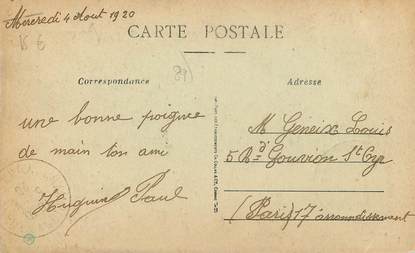 Mercredi 4 Aout 1920
CARTE POSTALE
Correspondance
Adresse
une bonne poignée
de main ton ami
Huguin Paul
M Geneix Louis
5 Bd Gouvion St Cyr
(Paris) 17 arrondissement